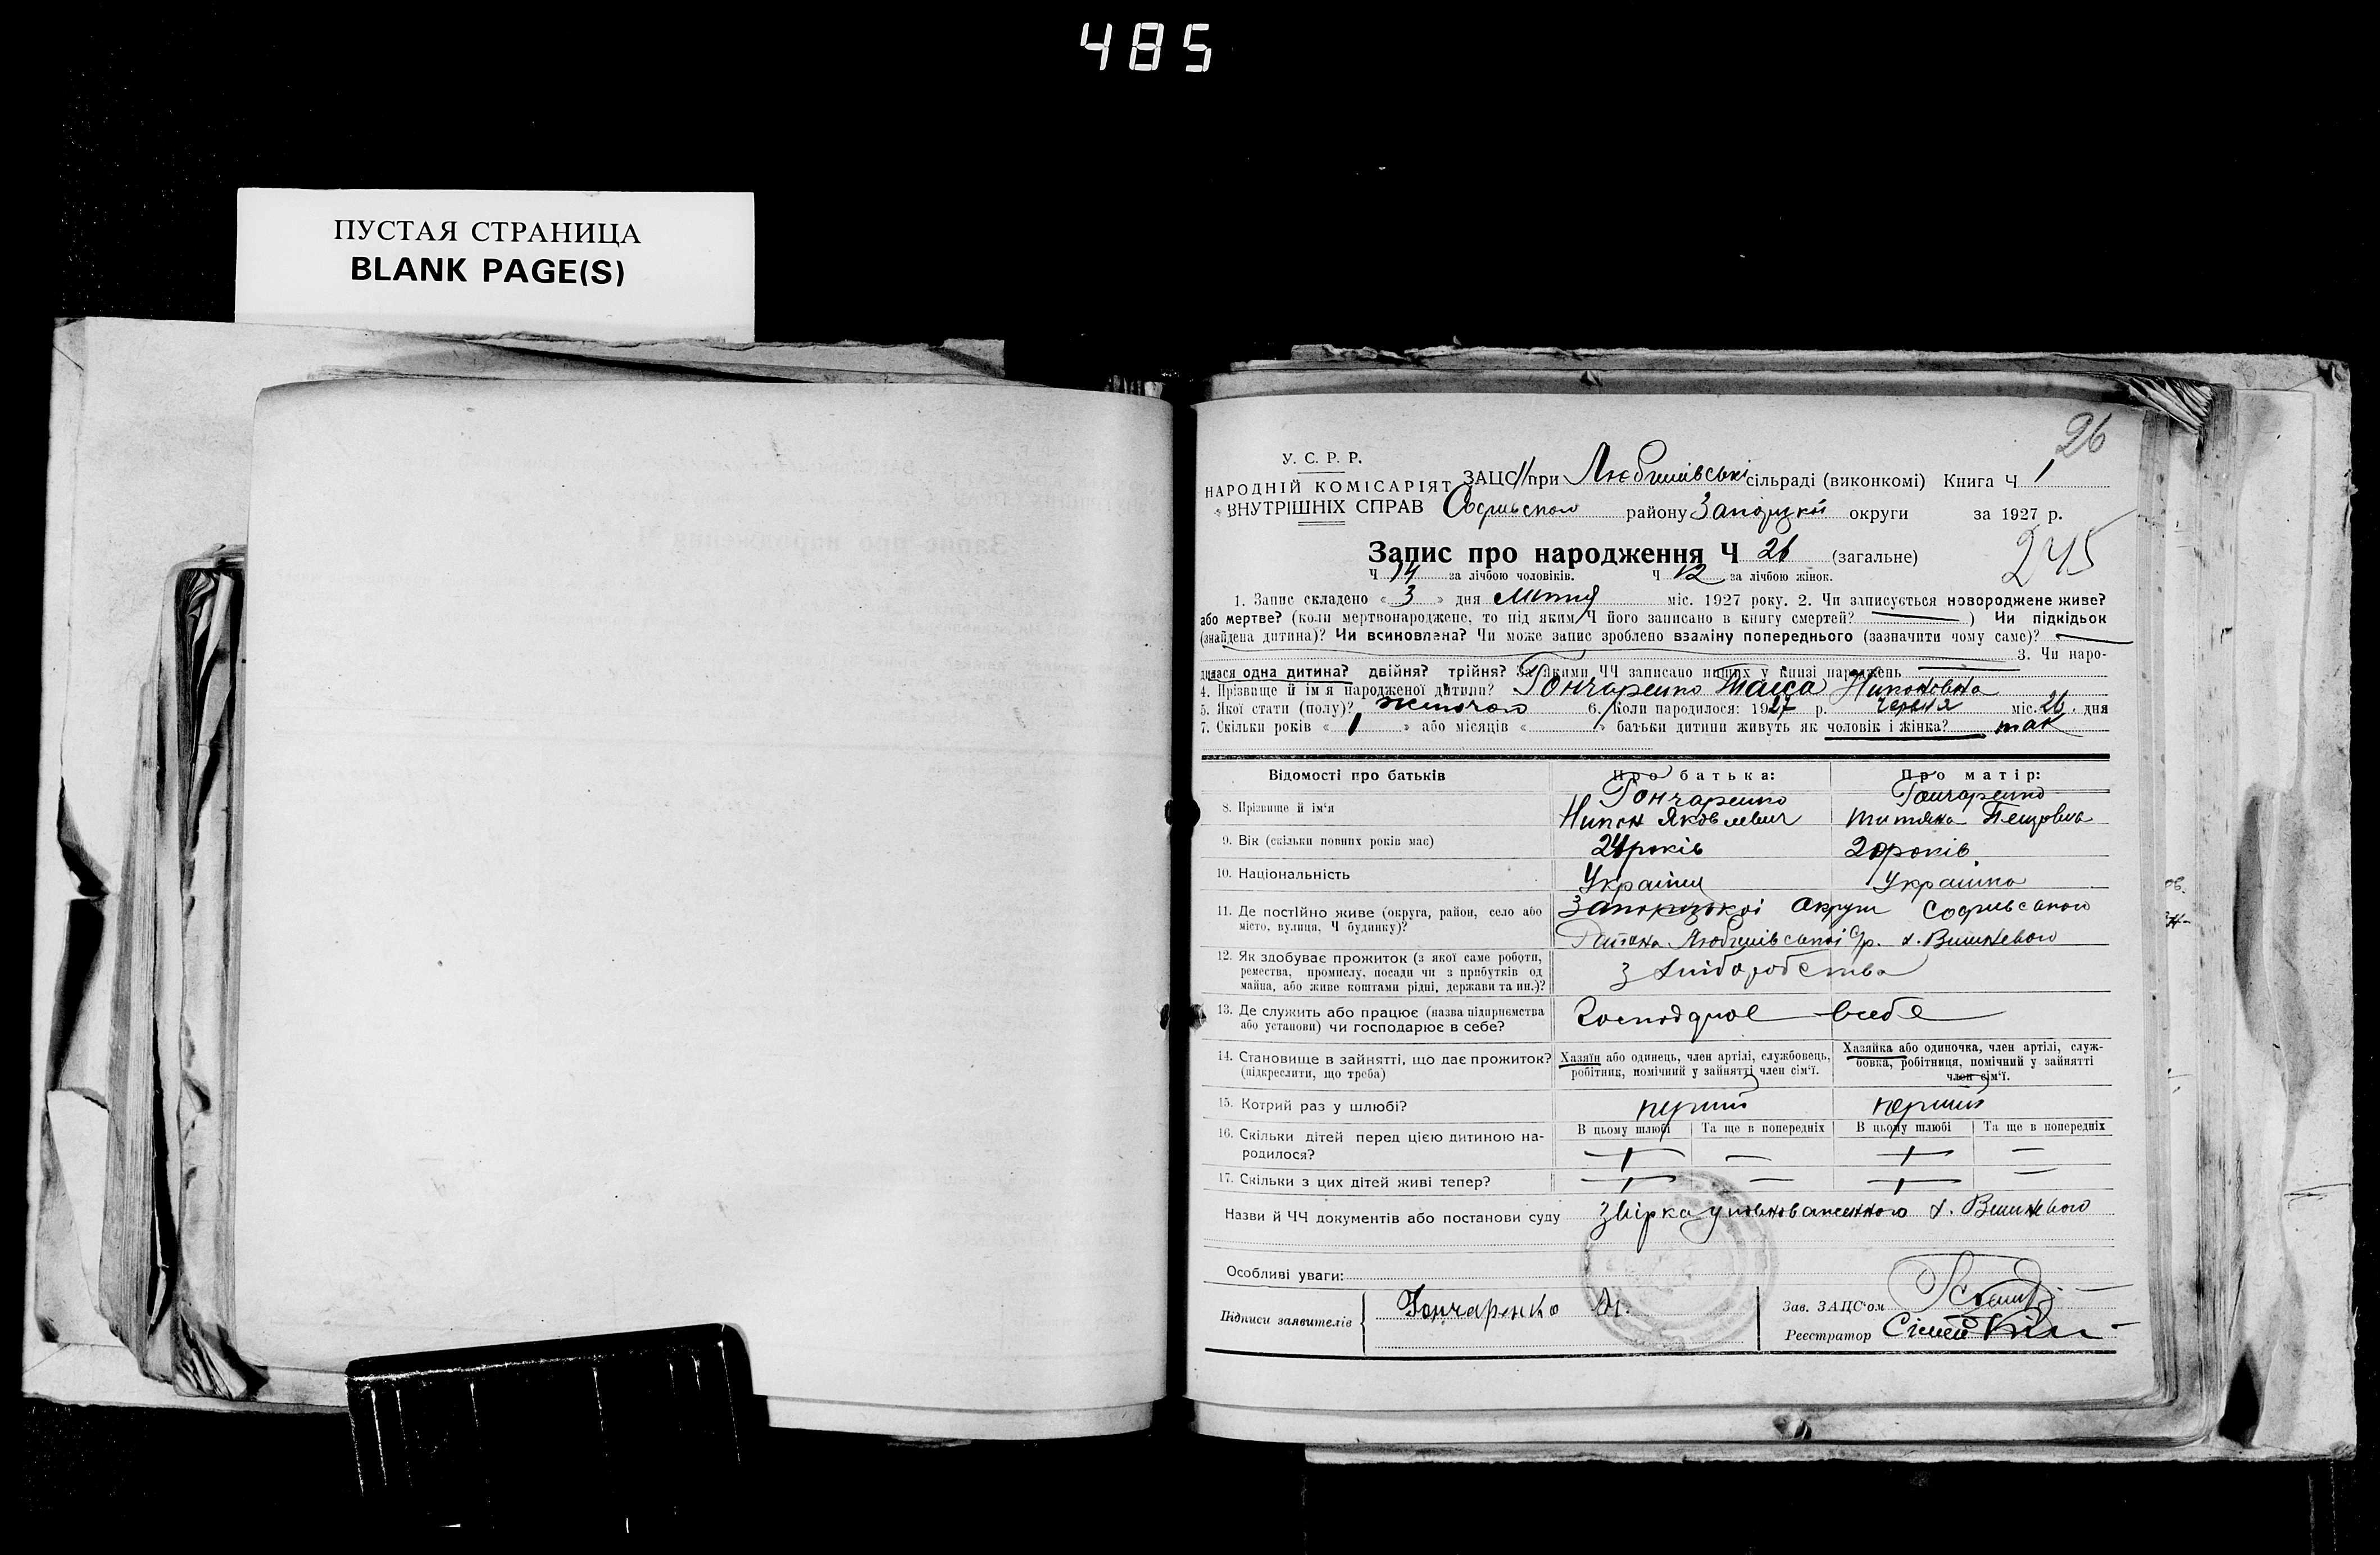 485
ПУСТАЯ СТРАНИЦА
BLANK PAGE(S)
26
У. С. Р. Р.
НАРОДНІЙ КОМІСАРІЯТ
ВНУТРІШНІХ СПРАВ
ЗАЦС при Любимівські сільраді (виконкомі) Книга Ч 1
району Запоріжської округи за 1927 р.
245
Запис про народження Ч 26 (загальне)
Ч 14 за лічбою чоловіків. Ч 12 за лічбою жінок.
1. Запис складено « 3 » дня Липня міс. 1927 року. 2. Чи записується новороджене живе?
або мертве? (коли мертвонароджене, то під яким Ч його записано в книгу смертей? — ) Чи підкідьок
(знайдена дитина)? Чи всиновлена? Чи може запис зроблено взаміну попереднього (зазначити чому саме)? —
3. Чи наро-
дилася одна дитина? двійня? трійня? За якими ЧЧ записано инших у книзі народжень
4. Прізвище й ім'я народженої дитини? Гончаренко Таиса Нипоновна
5. Якої стати (полу)? жіночою 6. Коли народилося: 1927 р. червня міс. 26. дня
7. Скільки років « 1 » або місяців « » батьки дитини живуть як чоловік і жінка? так
Відомості про батьків Про батька: Про матір:
8. Прізвище й ім'я Гончаренко Гончаренко
Нипон Яковлевич Титяна Петровна
9. Вік (скільки повних років має) 24 років 20 років
10. Національність Українц Украинка
11. Де постійно живе (округа, район, село або
місто, вулиця, Ч будинку)?
Запоріжської Округи Софиевського
Района Любимівської х. Вишневого
12. Як здобуває прожиток (з якої саме роботи,
ремества, промислу, посади чи з прибутків од
майна, або живе коштами рідні, держави та ин.)?
з хліборобства
13. Де служить або працює (назва підприємства
або установи) чи господарює в себе?
всебе
14. Становище в зайнятті, що дає прожиток?
(підкреслити, що треба)
Хазяїн або одинець, член артілі, службовець,
робітник, помічний у зайнятті член сім'ї.
Хазяйка або одиночка, член артілі, служ-
бовка, робітниця, помічний у зайнятті
член сім'ї.
15. Котрий раз у шлюбі? перший перший
16. Скільки дітей перед цією дитиною на-
родилося?
В цьому шлюбі Та ще в попередніх В цьому шлюбі Та ще в попередніх
— — — —
17. Скільки з цих дітей живі тепер? — — — —
Назви й ЧЧ документів або постанови суду Звірка уповноваженного х. Вишневого
Особливі уваги:
Підписи заявителів Гончаренко Н.
Зав. ЗАЦС'ом
Реєстратор